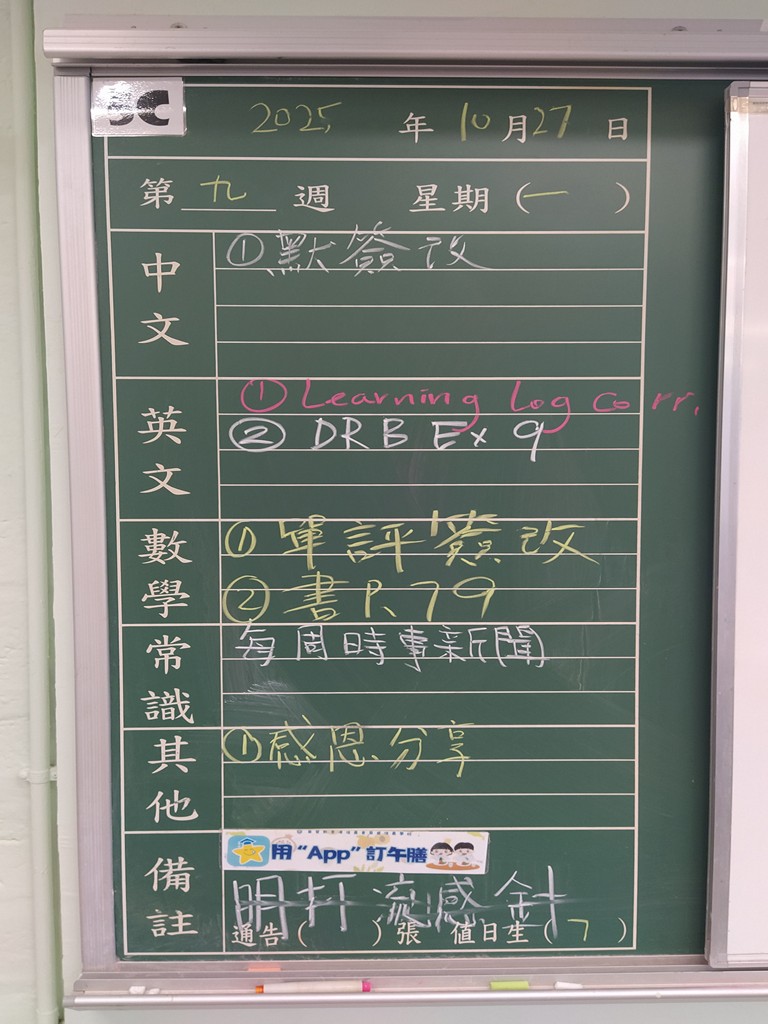 5C
2025 年 10 月 27 日
第 九 週 星期 (一)
中文
① 默簽改
英文
① Learning Log corr.
② DRB Ex 9
數學
① 單評簽改
② 書P.79
常識
每周時事新聞
其他
① 感恩分享
備註
用“App”訂午膳
明打流感針
通告( )張 值日生(7)